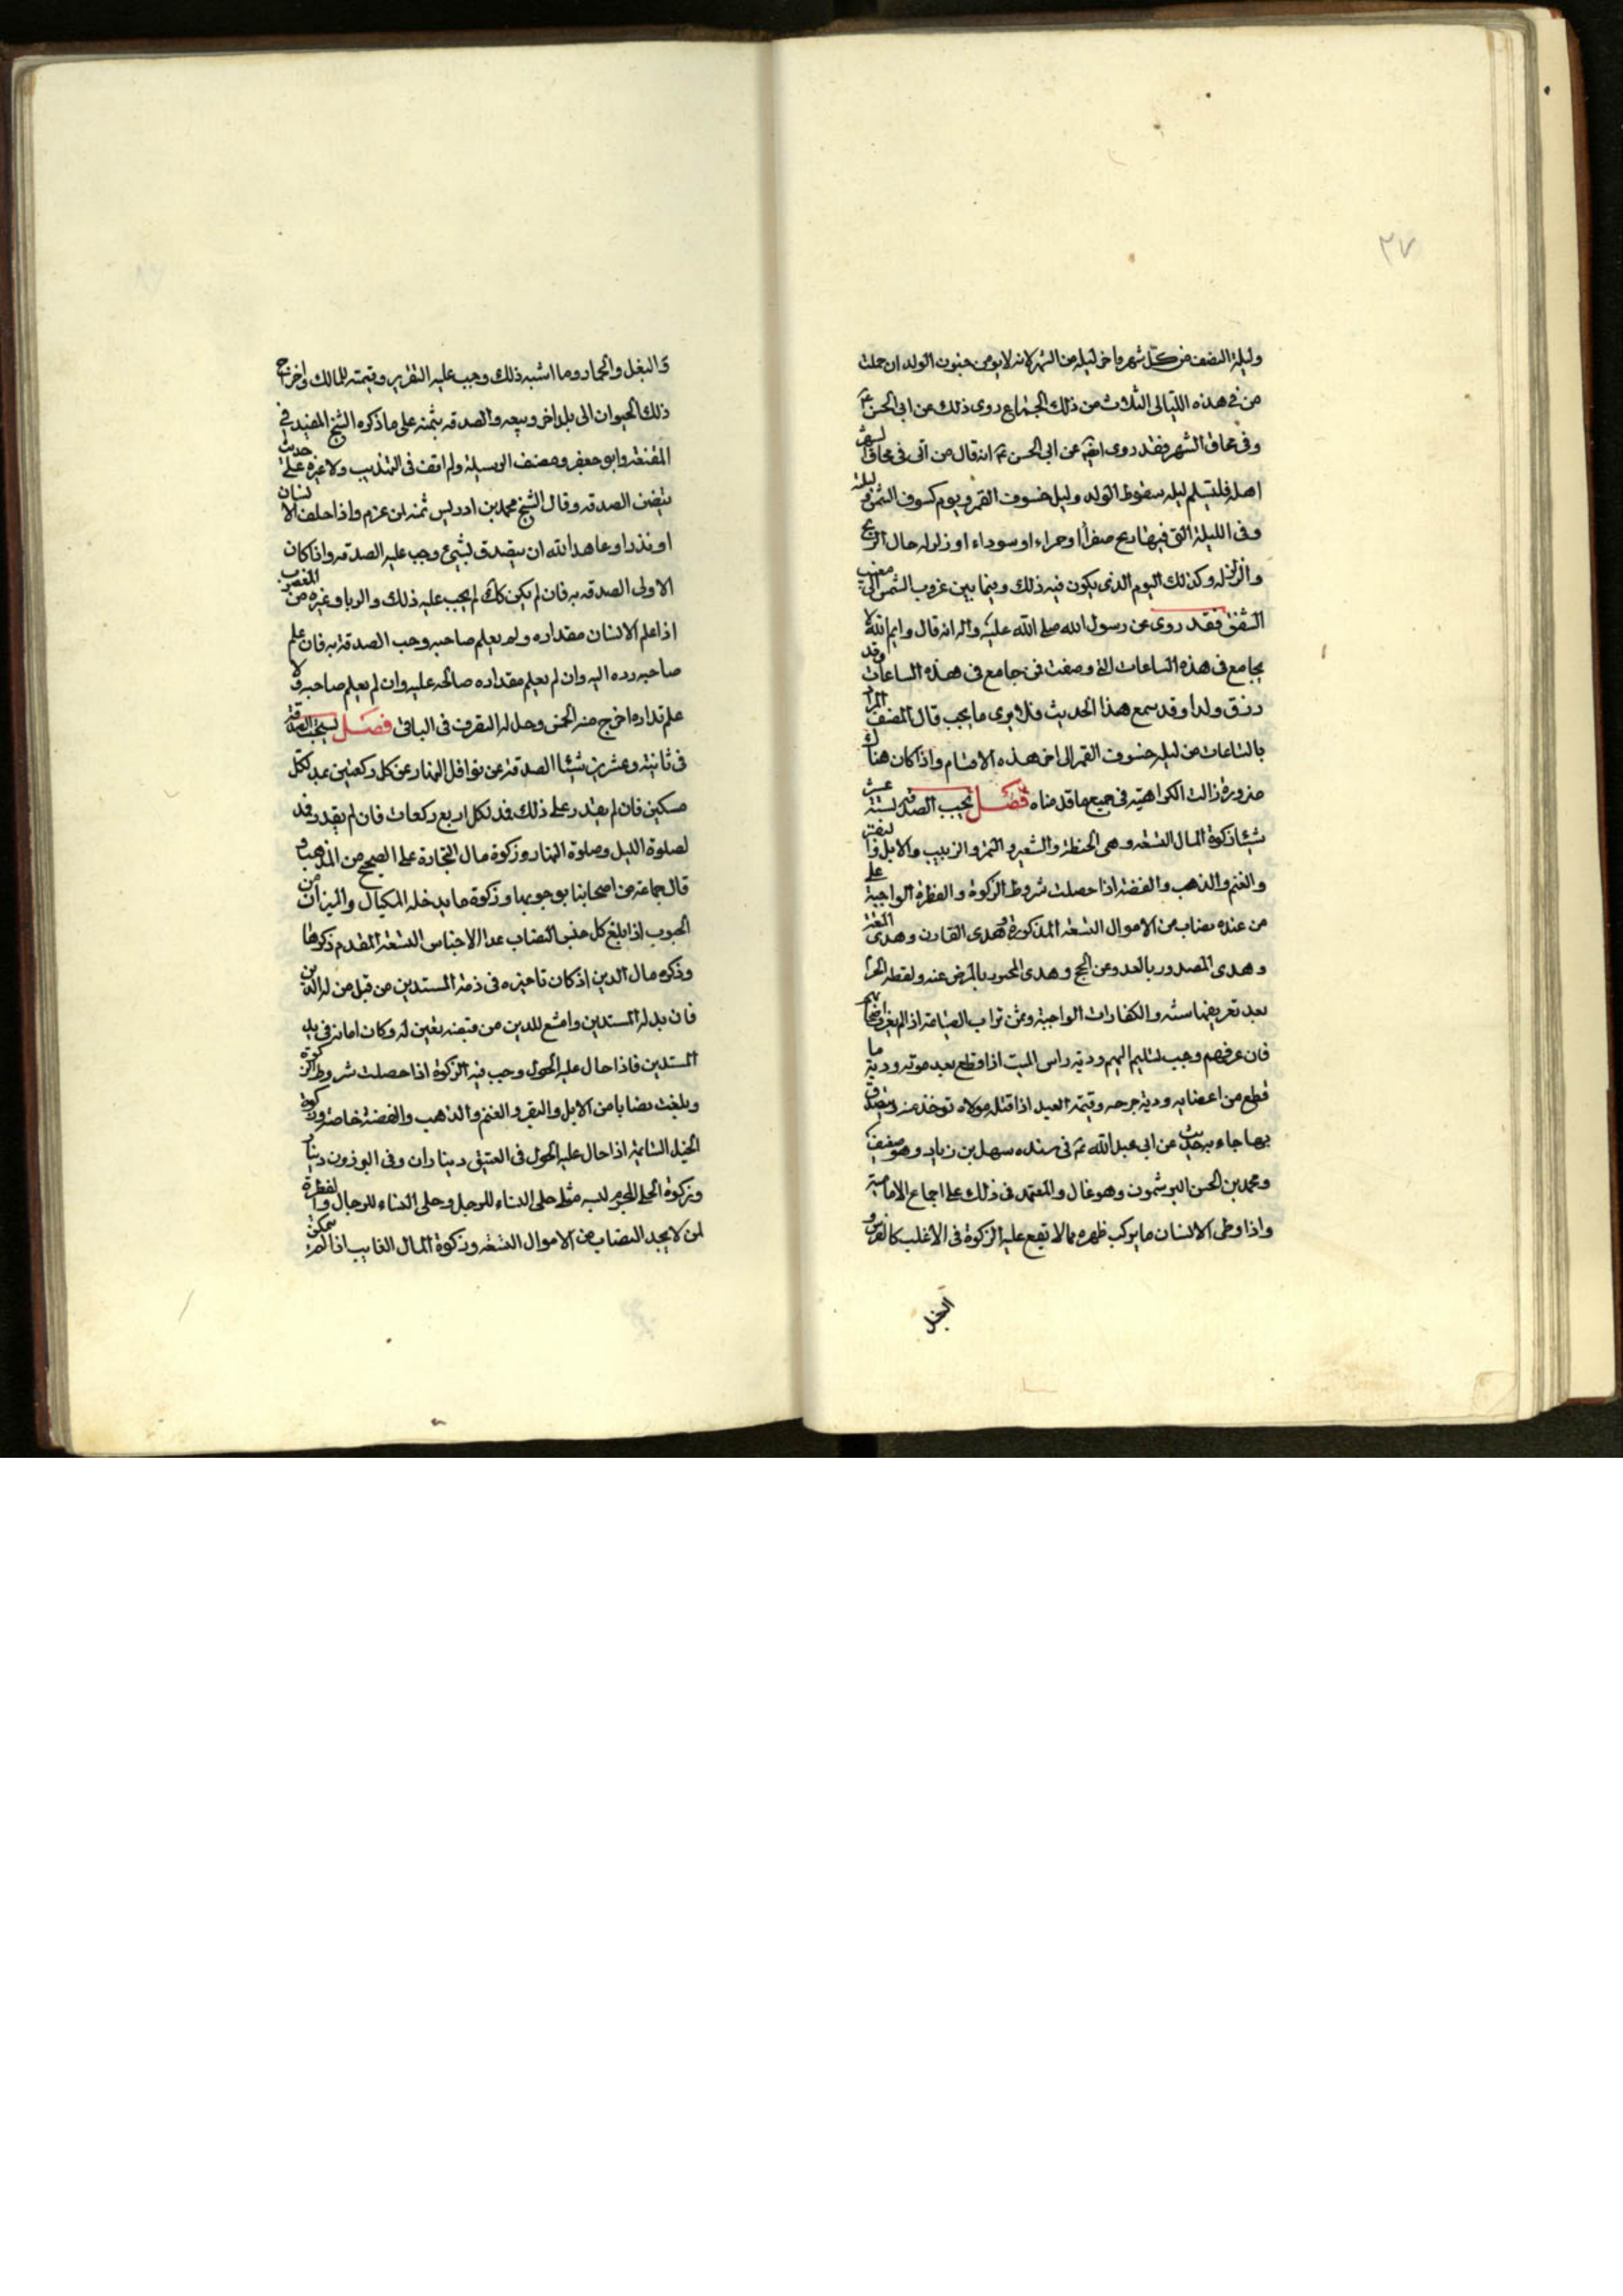 ٢٧
وليلة النصف من كل شهر واخر ليله من الشهر لانه لا يومن جنون الولد ان حملت
من في هذه الليالى الثلاث من ذلك الجماع روى ذلك عن ابى الحسن عم
وفى محاق الشهر فقد روى ايضا عن ابى الحسن عم انه قال من اتى فى محاق الشهر
اهله فليسلم ليله سقوط الولد وليله خسوف القمر ويوم كسوف الشمس و ليلة
وفى الليلة التى فيها ريح صفرا او حمراء او سوداء او زلزله حال الريح
والزلزله وكذلك اليوم الذى يكون فيه ذلك وفيما بين غروب الشمس الى مغيب
الشفق فقد روى عن رسول الله صلى الله عليه واله انه قال وايم الله لا
يجامع فى هذه الساعات التى وصفت فى جامع فى هذه الساعات وقد
رزق ولدا وقد سمع هذا الحديث فلا يرى ما يحب قال المصنف المراد
بالساعات من ليله خسوف القمر الى اخر هذه الاقسام واذا كان هناك
ضرورة زالت الكراهيته فى جميع ما قدمناه فصل تجب الصدقه لستة عشر
شيئا زكوة المال التسعه وهى الحنطة والشعير والتمر والزبيب والابل والبقر
والغنم والذهب والفضة اذا حصلت شروط الزكوة والفطرة الواجبة على
من عنده نصاب من الاموال التسعه المذكورة وهدى القارن وهدى المتعة
وهدى المصدور بالعدو عن الحج وهدى المحصور بالمرض عنه ولقطه الحرم
بعد تعريفها سنه والكفارات الواجبة وثمن تراب الصياغة اذا لم يعرف اصحابه
فان عرفهم وجب تسليم اليهم ودية راس الميت اذا قطع بعد موته ودية ما
قطع من اعضايه ودية جرحه وقيمة العبد اذا قتله مولاه توخذ منه ويتصدق
بها جاء به حديث عن ابى عبد الله عم فى سنده سهل بن زياد وهو ضعيف
ومحمد بن الحسن البو شمون وهو غال والمعتمد فى ذلك على اجماع الامامية
واذا وطى الانسان ما يركب ظهره مما لا تقع عليه الزكوة فى الاغلب كالفرس و
البغل
والبغل والحمار وما اشبه ذلك وجب عليه التغرير وقيمته للمالك واخرج
ذلك الحيوان الى بلد اخر وبيعه والصدقه بثمنه على ما ذكره الشيخ المفيد فى
المقنعه وابو جعفر ومصنف الوسيلة ولم اقف فى التهذيب ولا غيره على حديث
يتضمن الصدقه وقال الشيخ محمد بن ادريس ثمنه لمن غرم واذا حلف الانسان
او نذر او عاهد الله ان يتصدق بشيء وجب عليه الصدقه واذا كان
الاولى الصدقه به فان لم يكن كك لم يجب عليه ذلك والربا وغيره من المغصوب
اذا علم الانسان مقداره ولم يعلم صاحبه وجب الصدقة به فان علم
صاحبه رده اليه وان لم يعلم مقداره صالحه عليه وان لم يعلم صاحبه ولا
علم مقداره اخرج منه الخمس وحل له التصرف فى الباقى فصل تستحب الصدقة
فى ثمانية وعشرين شيئا الصدقة عن نوافل النهار عن كل ركعتين مد لكل
مسكين فان لم يقدر على ذلك فمد لكل اربع ركعات فان لم يقدر فمد
لصلوة الليل وصلوة النهار وزكوة مال التجارة على الصحيح من المذهب و
قال جماعة من اصحابنا بوجوبها وزكوة ما يدخله المكيال والميزان من
الحبوب اذا بلغ كل جنس النصاب عدا الاجناس التسعة المقدم ذكرها
وذكوه مال الدين اذ كان تاخيره فى ذمة المستدين من قبل من له الدين
فان بدله المستدين وامتنع المدين من قبضه تعين له وكان امانة فى يد
المستدين فاذا حال عليه الحول وجب فيه الزكوة اذا حصلت شروط الزكوة
وبلغت نصابا من الابل والبقر والغنم والذهب والفضة خاصة وزكوة
الخيل السائمة اذا حال عليه الحول فى العتيق ديناران وفى البرذون دينار
وزكوة الحلى المحرم لبسه مثل حلى النساء للرجل وحلى النساء للرجال والفطرة
لمن لا يجد النصاب من الاموال التسعه وزكوة المال الغايب اذا لم يتمكن